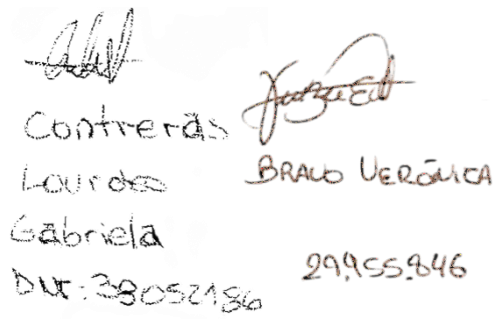 Contreras
Lourdes
Gabriela
DNI: 38052186
BRAVO VERÓNICA
29.955.846